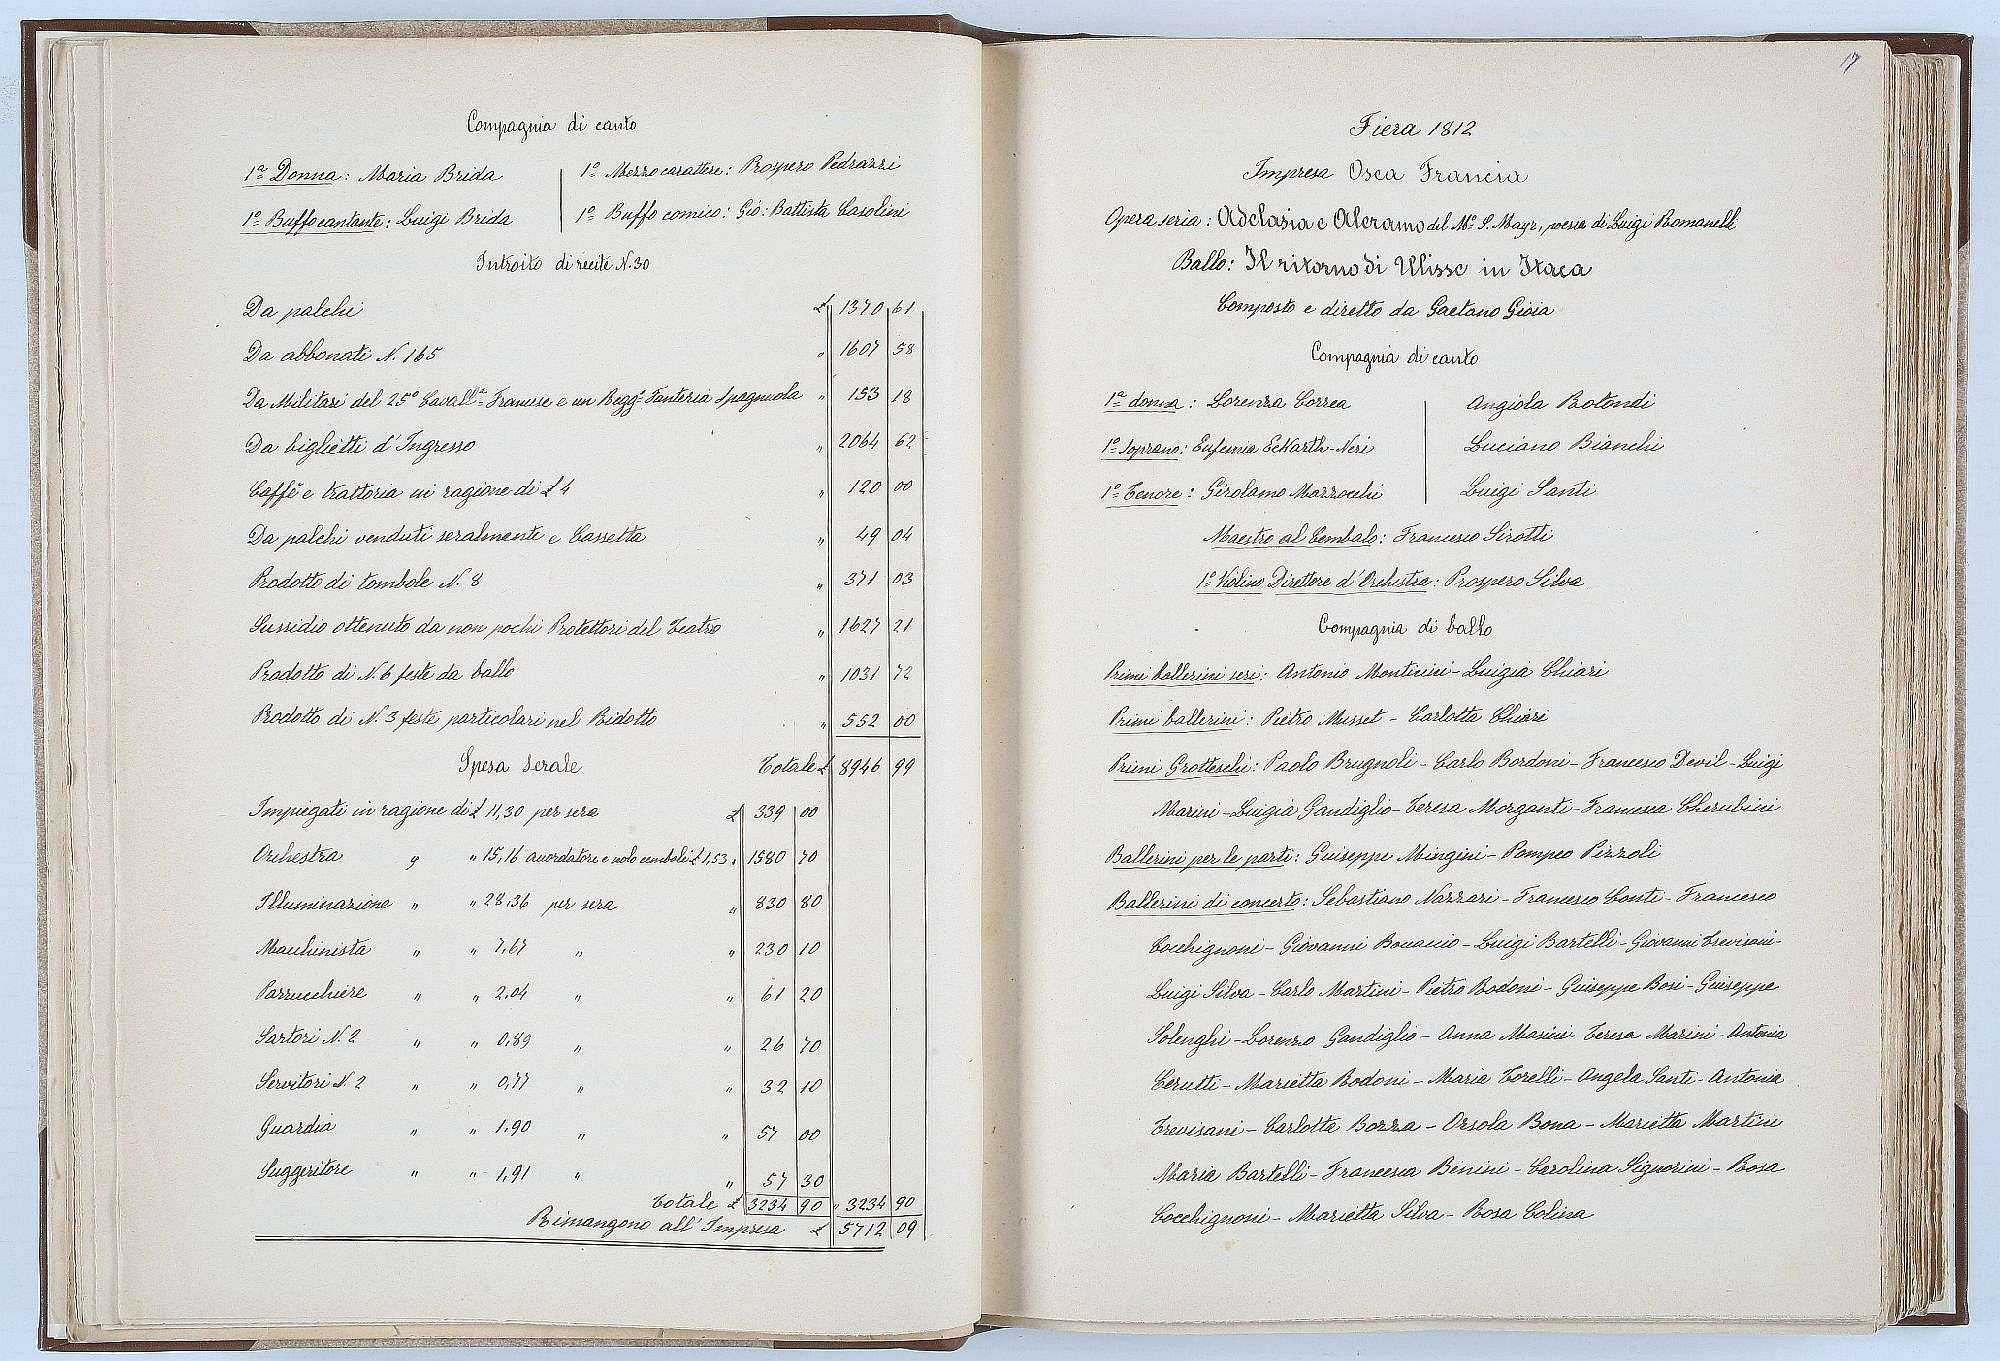 Compagnia di canto
1ª Donna: Maria Brida
1º Buffo cantante: Luigi Brida
1º Mezzo carattere: Prospero Pedrazzi
1º Buffo comico: Gio: Battista Casolini
Introito di recite N. 30
Da palchi £ 1370 61
Da abbonati N. 165 " 1607 58
Da Militari del 25º Cavallª Francese e un Reggº Fanteria Spagnuola " 153 18
Da biglietti d'Ingresso " 2064 62
Caffè e trattoria in ragione di £ 4 " 120 00
Da palchi venduti seralmente e Cassetta " 49 04
Prodotto di tombole N. 8 " 371 03
Sussidio ottenuto da non pochi Protettori del Teatro " 1627 21
Prodotto di N. 6 feste da ballo " 1031 72
Prodotto di N. 3 feste particolari nel Ridotto " 552 00
Spesa Serale Totale £ 8946 99
Impiegati in ragione di £ 11,30 per sera £ 339 00
Orchestra " " 15,16 accordatore e nolo cemboli £ 1,53 " 1580 70
Illuminazione " " 28,36 per sera " 830 80
Macchinista " " 7,67 " " 230 10
Parrucchiere " " 2.04 " " 61 20
Sartori N. 2 " " 0,89 " " 26 70
Servitori N. 2 " " 0,77 " " 32 10
Guardia " " 1.90 " " 57 00
Suggeritore " " 1,91 " " 57 30
Totale £ 3234 90 " 3234 90
Rimangono all'Impresa £ 5712 09
17
Fiera 1812
Impresa Osea Francia
Opera seria: Adelasia e Aleramo del Mº S. Mayr, poesia di Luigi Romanelli
Ballo: Il ritorno di Ulisse in Itaca
Composto e diretto da Gaetano Gioia
Compagnia di canto
1ª donna: Lorenza Correa
1º Soprano: Eufemia Eckarth-Neri
1º Tenore: Girolamo Mazzocchi
Angiola Rotondi
Luciano Bianchi
Luigi Santi
Maestro al Cembalo: Francesco Sirotti
1º Violino Direttore d'Orchestra: Prospero Silva
Compagnia di ballo
Primi ballerini seri: Antonio Monticini - Luigia Chiari
Primi ballerini: Pietro Musset - Carlotta Chiari
Primi Grotteschi: Paolo Brugnoli - Carlo Bordoni - Francesco Devil - Luigi
Marini - Luigia Gandiglio - Teresa Morganti - Francesca Cherubini
Ballerini per le parti: Guiseppe Mingini - Pompeo Pizzoli
Ballerini di concerto: Sebastiano Nazzari - Francesco Conti - Francesco
Cocchignoni - Giovanni Bocaccio - Luigi Bartelli - Giovanni Trevisani -
Luigi Silva - Carlo Martini - Pietro Bodoni - Guiseppe Bosi - Guiseppe
Solenghi - Lorenzo Gandiglio - Anna Masini - Teresa Marini - Antonia
Cerutti - Marietta Bodoni - Maria Torelli - Angela Santi - Antonia
Trevisani - Carlotta Bozza - Orsola Bona - Marietta Martini
Maria Bartelli - Francesca Benini - Carolina Signorini - Rosa
Cocchignoni - Marietta Silva - Rosa Colina